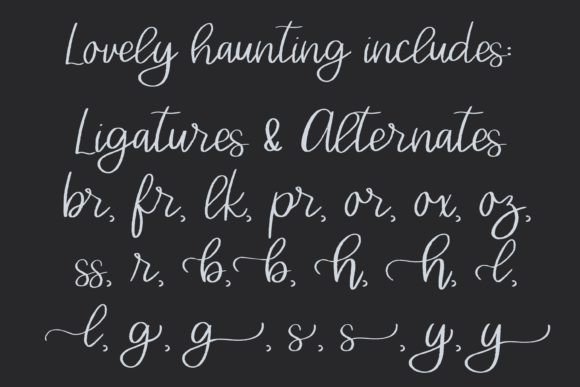 Lovely haunting includes:
Ligatures & Alternates
br, fr, lk, pr, or, ox, oz,
ss, r, b, b, h, h, l,
l, g, g, s, s, y, y